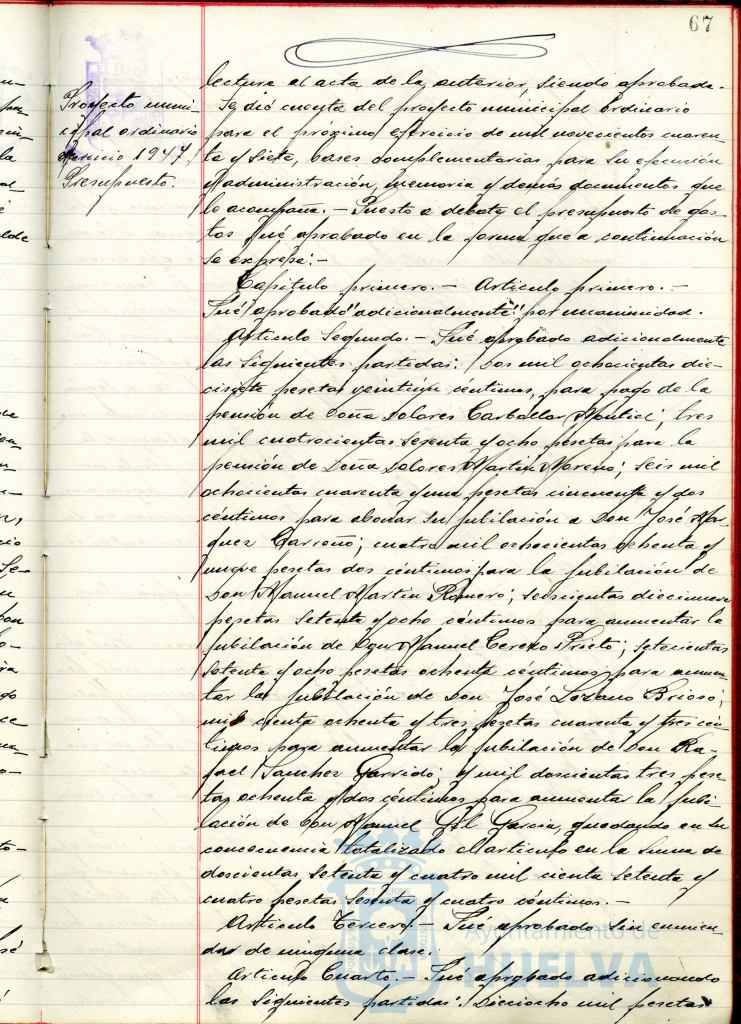 67
lectura al acta de la anterior, siendo aprobada.
Proyecto muni-
cipal ordinario
ejercicio 1947.
Presupuesto.
Se dió cuenta del proyecto municipal ordinario
para el próximo ejercicio de mil novecientos cuaren-
ta y siete, bases complementarias para su ejecución
Administración, memoria y demás documentos que
lo acompaña.- Puesto a debate el presupuesto de gas-
tos fué aprobado en la forma que a continuación
se expresa:-
Capitulo primero.- Articulo primero.-
Fué aprobado "adicionalmente" por unanimidad.
Articulo Segundo.- Fué aprobado adicionalmente
las siguientes partidas: Dos mil ochocientas die-
cisiete pesetas veintiún céntimos, para pago de la
pensión de Doña Dolores Carballar Montiel; tres
mil cuatrocientas sesenta y ocho pesetas para la
pensión de Doña Dolores Martin Moreno; seis mil
ochocientas cuarenta y una pesetas cincuenta y dos
céntimos para abonar su jubilación a Don José Mar-
quez Carreño; cuatro mil ochocientas ochenta y
nueve pesetas dos céntimos para la jubilación de
Don Manuel Martin Romero; seiscientas diecinueve
pesetas setenta y ocho céntimos para aumentar la
jubilación de Don Manuel Cerezo Prieto; setecientas
setenta y ocho pesetas ochenta céntimos para aumen-
tar la jubilación de Don José Lozano Brioso;
mil cienta ochenta y tres pesetas cuarenta y tres cén-
timos para aumentar la jubilación de Don Ra-
fael Sanchez Garrido; y mil doscientas tres pese-
tas ochenta y dos céntimos para aumentar la jubi-
lación de Don Manuel Gil Garcia, quedando en su
concecuencia totalizado el articulo en la suma de
doscientas setenta y cuatro mil cienta setenta y
cuatro pesetas sesenta y cuatro céntimos.-
Articulo Tercero.- Fué aprobado sin enmien-
das de ninguna clase.
Articulo Cuarto.- Fué aprobado adicionando
las siguientes partidas: Dieciocho mil pesetas
Ayuntamiento de
HUELVA